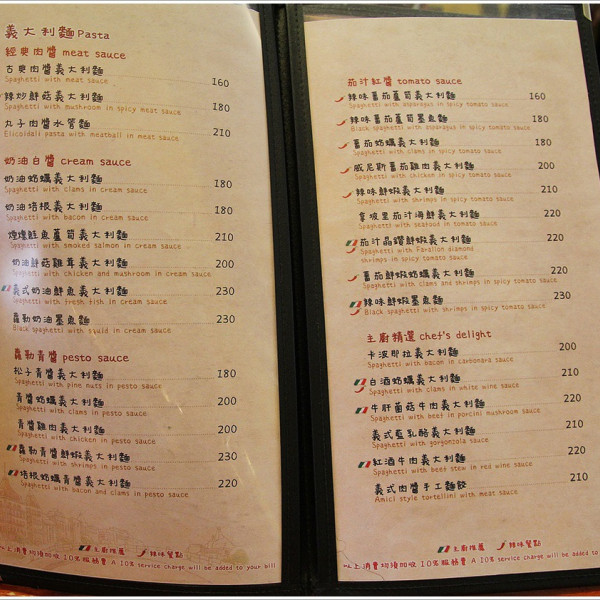 義大利麵 Pasta
經典肉醬 meat sauce
古典肉醬義大利麵 160
Spaghetti with meat sauce
辣炒鮮菇義大利麵 180
Spaghetti with mushroom in spicy meat sauce
丸子肉醬水管麵 210
Elicoidali pasta with meatball in meat sauce
奶油白醬 cream sauce
奶油蛤蠣義大利麵 180
Spaghetti with clams in cream sauce
奶油培根義大利麵 180
Spaghetti with bacon in cream sauce
煙燻鮭魚蘆筍義大利麵 210
Spaghetti with smoked salmon in cream sauce
奶油鮮菇雞茸義大利麵 200
Spaghetti with chicken and mushroom in cream sauce
義式奶油鮮魚義大利麵 230
Spaghetti with fresh fish in cream sauce
蘿勒奶油墨魚麵 230
Black spaghetti with squid in cream sauce
蘿勒青醬 pesto sauce
松子青醬義大利麵 180
Spaghetti with pine nuts in pesto sauce
青醬蛤蠣義大利麵 200
Spaghetti with clams in pesto sauce
青醬雞肉義大利麵 200
Spaghetti with chicken in pesto sauce
蘿勒青醬鮮蝦義大利麵 230
Spaghetti with shrimps in pesto sauce
培根蛤蠣青醬義大利麵 220
Spaghetti with bacon and clams in pesto sauce
主廚推薦 辣味餐點
以上消費均須加收 10%服務費 A 10% service charge will be added to your bill
茄汁紅醬 tomato sauce
辣味蕃茄蘆筍義大利麵 160
Spaghetti with asparagus in spicy tomato sauce
辣味蕃茄蘆筍墨魚麵 180
Black spaghetti with asparagus in spicy tomato sauce
蕃茄蛤蠣義大利麵 180
Spaghetti with clams in spicy tomato sauce
威尼斯蕃茄雞肉義大利麵 200
Spaghetti with chicken in spicy tomato sauce
辣味鮮蝦義大利麵 210
Spaghetti with shrimps in spicy tomato sauce
拿坡里茄汁海鮮義大利麵 220
Spaghetti with seafood in tomato sauce
茄汁晶鑽鮮蝦義大利麵 220
Spaghetti with Farallon diamond
shrimps in spicy tomato sauce
蕃茄鮮蝦蛤蠣義大利麵 220
Spaghetti with clams and shrimps in spicy tomato sauce
辣味鮮蝦墨魚麵 230
Black spaghetti with shrimps in spicy tomato sauce
主廚精選 chef's delight
卡波那拉義大利麵 200
Spaghetti with bacon in carbonara sauce
白酒蛤蠣義大利麵 210
Spaghetti with clams in white wine sauce
牛肝菌菇牛肉義大利麵 220
Spaghetti with beef in porcini mushroom sauce
義式藍乳酪義大利麵 210
Spaghetti with gorgonzola sauce
紅酒牛肉義大利麵 210
Spaghetti with beef stew in red wine sauce
義式肉醬手工麵餃 210
Amici style tortellini with meat sauce
主廚推薦 辣味餐點
以上消費均須加收 10%服務費 A 10% service charge will be added to